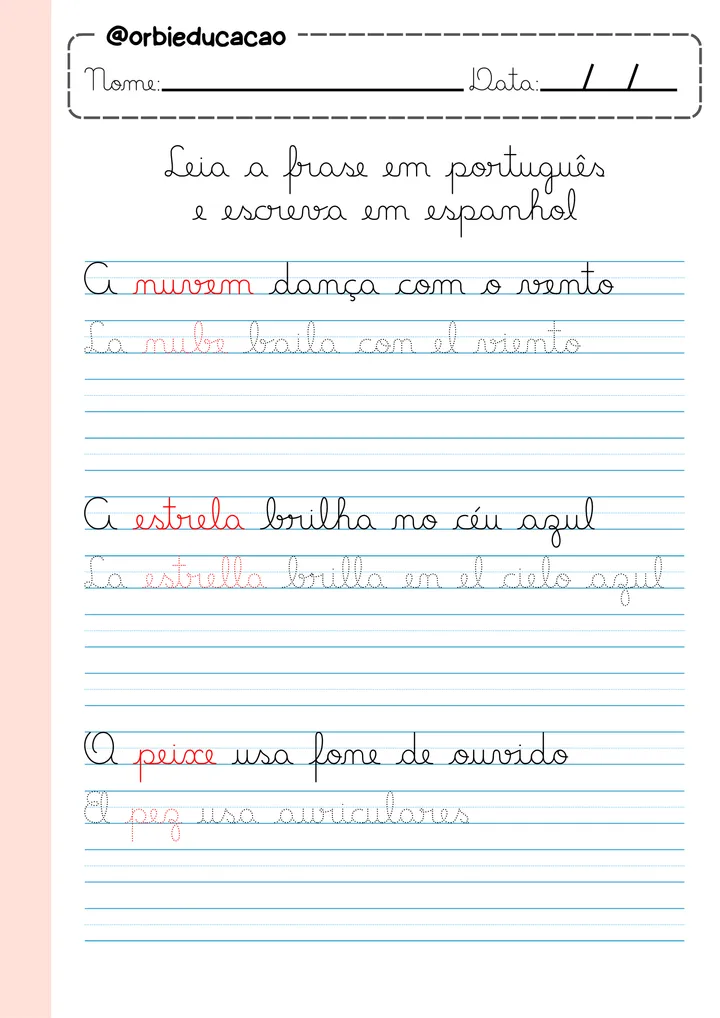 @orbieducacao
Nome: Data: / /
Leia a frase em português
e escreva em espanhol
A nuvem dança com o vento
La nube baila con el viento
A estrela brilha no céu azul
La estrella brilla en el cielo azul
O peixe usa fone de ouvido
El pez usa auriculares